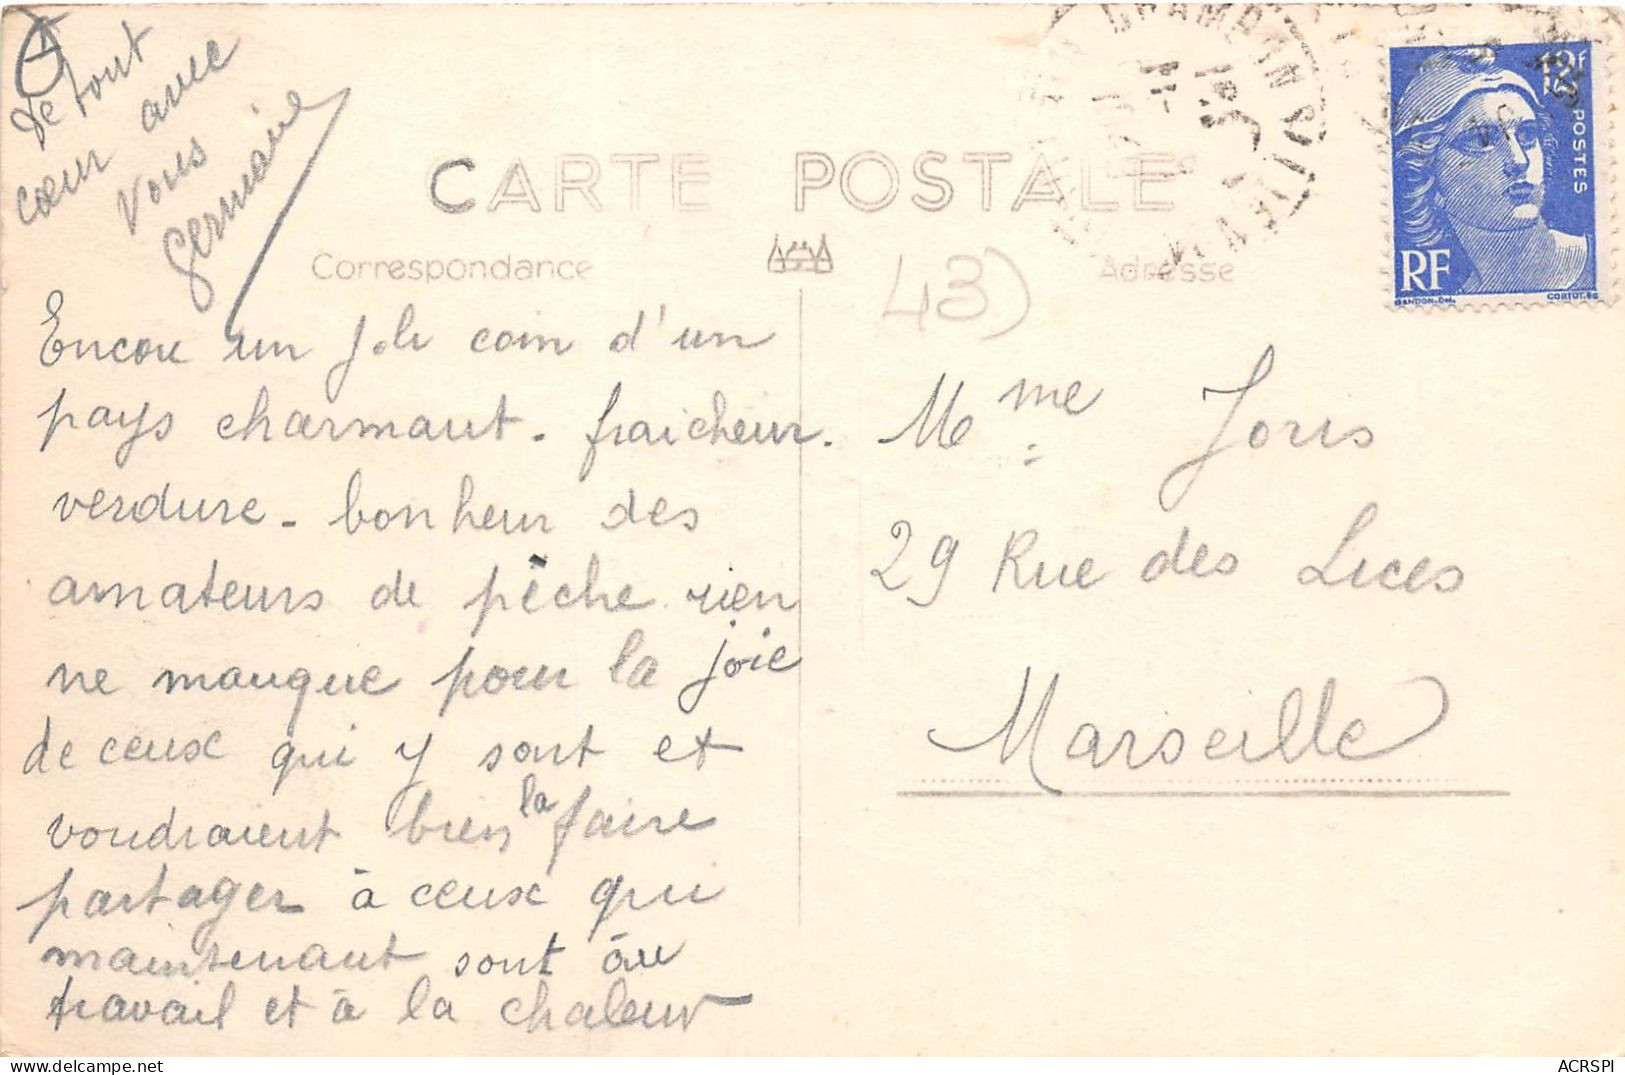 De tout
cœur avec
vous
Germaine
CARTE POSTALE
Correspondance
Adresse
43)
12F
POSTES
RF
GANDON.Del.
CORTOT.SC
Encore un joli coin d'un
pays charmant. fraicheur.
verdure - bonheur des
amateurs de pêche rien
ne manque pour la joie
de ceux qui y sont et
voudraient bien la faire
partager à ceux qui
maintenant sont au
travail et à la chaleur
Mme Joris
29 Rue des Lices
Marseille
ACRSPI